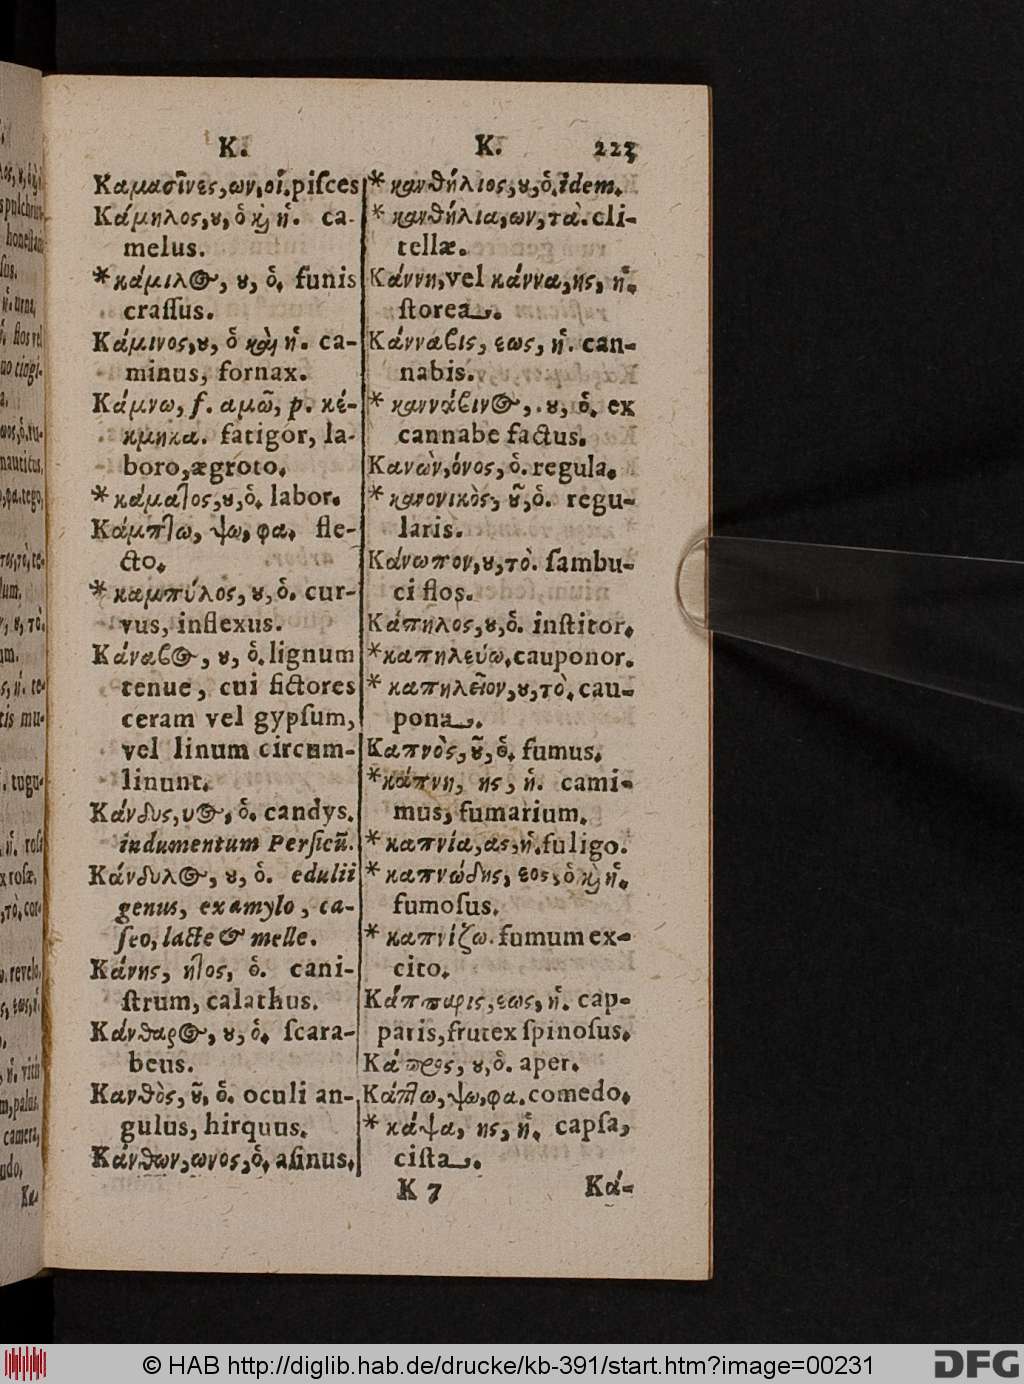 K.
K.
223
Καμασῖνες, ων, οἱ. piſces
Κάμηλος, ȣ, ὁ κ̀ ἡ. ca-
melus.
*κάμιλος, ȣ, ὁ. funis
craſſus.
Κάμινος, ȣ, ὁ καὶ ἡ. ca-
minus, fornax.
Κάμνω, f. αμῶ, p. κέ-
κμηκα. fatigor, la-
boro, ægroto.
*κάματος, ȣ, ὁ. labor.
Κάμπτω, ψω, φα. fle-
cto.
*καμπύλος, ȣ, ὁ. cur-
vus, inflexus.
Κάναβος, ȣ, ὁ. lignum
tenue, cui fictores
ceram vel gypſum,
vel linum circum-
linunt.
Κάνδυς, υος, ὁ. candys.
indumentum Perſicũ.
Κάνδυλος, ȣ, ὁ. edulii
genus, ex amylo, ca-
ſeo, lacte & melle.
Κάνης, ητος, ὁ. cani-
ſtrum, calathus.
Κάνθαρος, ȣ, ὁ. ſcara-
beus.
Κανθὸς, ȣ͂, ὁ. oculi an-
gulus, hirquus.
Κάνθων, ωνος, ὁ. aſinus.
*κανθήλιος, ȣ, ὁ. idem.
*κανθήλια, ων, τὰ. cli-
tellæ.
Κάννη, vel κάννα, ης, ἡ.
ſtorea.
Κάνναβις, εως, ἡ. can-
nabis.
*καννάβινος, ȣ, ὁ. ex
cannabe factus.
Κανὼν, όνος, ὁ. regula.
*κανονικὸς, ȣ͂, ὁ. regu-
laris.
Κάνωπον, ȣ, τὸ. ſambu-
ci flos.
Κάπηλος, ȣ, ὁ. inſtitor.
*καπηλεύω. cauponor.
*καπηλεῖον, ȣ, τὸ. cau-
pona.
Καπνὸς, ȣ͂, ὁ. fumus.
*κάπνη, ης, ἡ. cami-
mus, fumarium.
*καπνία, ας, ἡ. fuligo.
*καπνώδης, εος, ὁ κ̀ ἡ.
fumoſus.
*καπνίζω. fumum ex-
cito.
Κάππαρις, εως, ἡ. cap-
paris, frutex ſpinoſus.
Κάπρος, ȣ, ὁ. aper.
Κάπτω, ψω, φα. comedo.
*κάψα, ης, ἡ. capſa,
ciſta.
K 7
Κά-
© HAB http://diglib.hab.de/drucke/kb-391/start.htm?image=00231
DFG